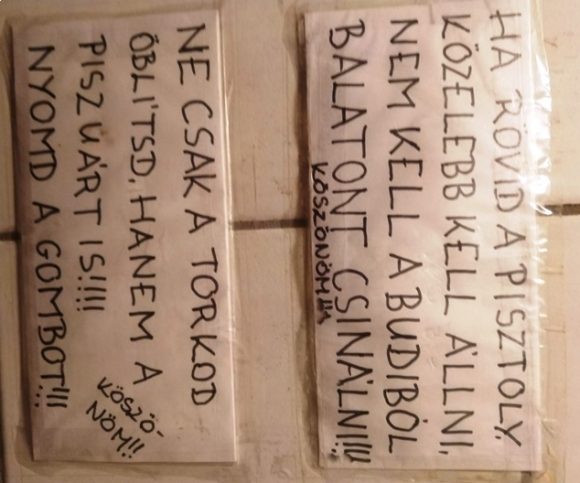 HA RÖVID A PISZTOLY,
KÖZELEBB KELL ÁLLNI,
NEM KELL A BUDIBÓL
BALATONT CSINÁLNI!!!
KÖSZÖNÖM!!!
NE CSAK A TORKOD
ÖBLÍTSD, HANEM A
PISZUÁRT IS!!!!
NYOMD A GOMBOT!!!
KÖSZÖ-
NÖM!!